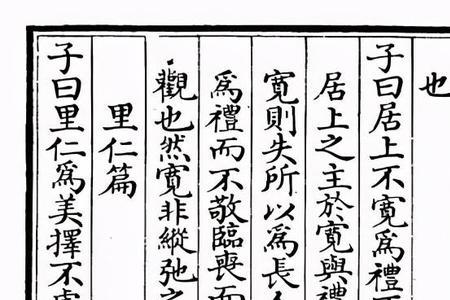 也
子曰居上不寬為禮不
居上之主於寬與禮
寬則失所以為長人
為禮而不敬臨喪而
觀也然寬非縱弛之
里仁篇
子曰里仁為美擇不處